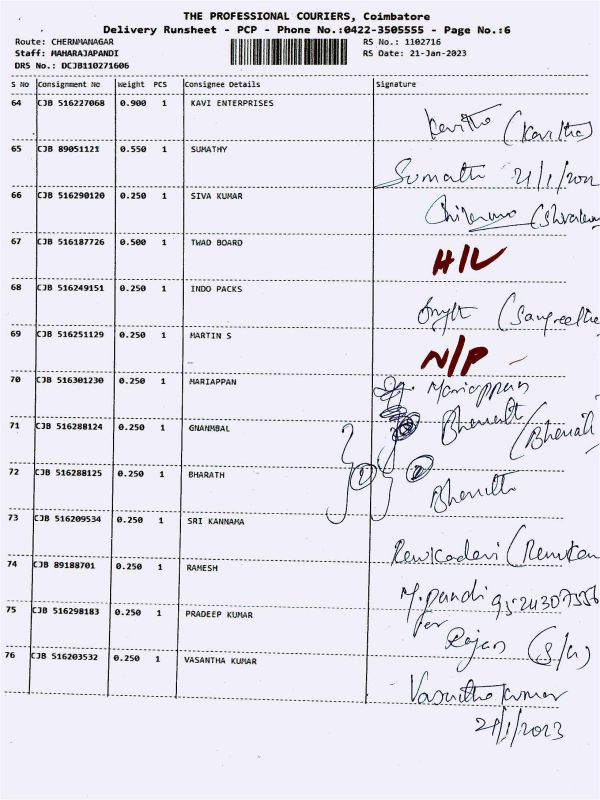 THE PROFESSIONAL COURIERS, Coimbatore
Delivery Runsheet - PCP - Phone No.:0422-3505555 - Page No.:6
Route: CHERNMANAGAR RS No.: 1102716
Staff: MAHARAJAPANDI RS Date: 21-Jan-2023
DRS No.: DCJB110271606
S No Consignment No Weight PCS Consignee Details Signature
64 CJB 516227068 0.900 1 KAVI ENTERPRISES
Kavitha (Kavitha)
65 CJB 89051121 0.550 1 SUMATHY
Sumathi 21/1/202
66 CJB 516290120 0.250 1 SIVA KUMAR
67 CJB 516187726 0.500 1 TWAD BOARD
H/L
68 CJB 516249151 0.250 1 INDO PACKS
(Sangeetha
69 CJB 516251129 0.250 1 MARTIN S
N/P
70 CJB 516301230 0.250 1 MARIAPPAN
Mariappan
71 CJB 516288124 0.250 1 GNANMBAL
72 CJB 516288125 0.250 1 BHARATH
1 2
73 CJB 516209534 0.250 1 SRI KANNAMA
Renukadevi
74 CJB 89188701 0.250 1 RAMESH
M. Pandi
75 CJB 516298183 0.250 1 PRADEEP KUMAR
for
Rajan
76 CJB 516203532 0.250 1 VASANTHA KUMAR
Vasantha Kumar
21/1/2023